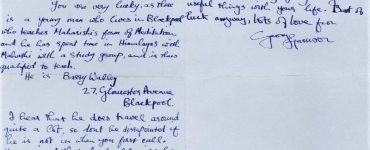 You are very lucky, as there
is a young man who lives in Blackpool
who teaches Maharishi's form of Meditation
and he has spent time in Himalayas with
Maharishi with a study group, and is thus
qualified to teach.
He is Barry Walley
27. Gloucester Avenue
Blackpool.
I hear that he does travel around
quite a lot, so dont be dissapointed if
he is not in when you first call.
useful things with your life. Best of
luck anyway, lots of love from
George Harrison